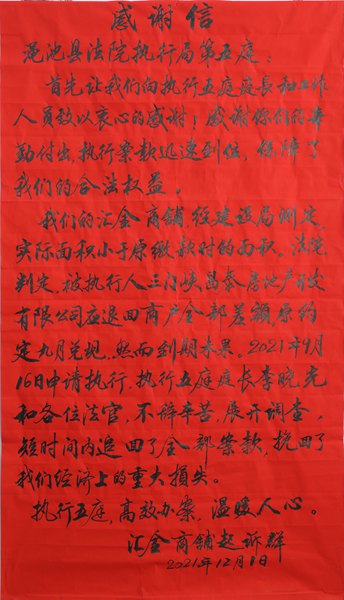 感谢信
渑池县法院执行局第五庭:
首先让我们向执行五庭庭长和工作
人员致以衷心的感谢!感谢你们的辛
勤付出,执行案款迅速到位,保障了
我们的合法权益。
我们的汇金商铺,经建设局测定,
实际面积小于原缴款时的面积。法院
判定,被执行人三门峡昌泰房地产开发
有限公司应退回商户全部差额,原约
定九月兑现,然而到期未果。2021年9月
16日申请执行,执行五庭庭长李晓光
和各位法官,不辞辛苦,展开调查,
短时间内追回了全部案款,挽回了
我们经济上的重大损失。
执行五庭,高效办案,温暖人心。
汇金商铺起诉群
2021年12月1日